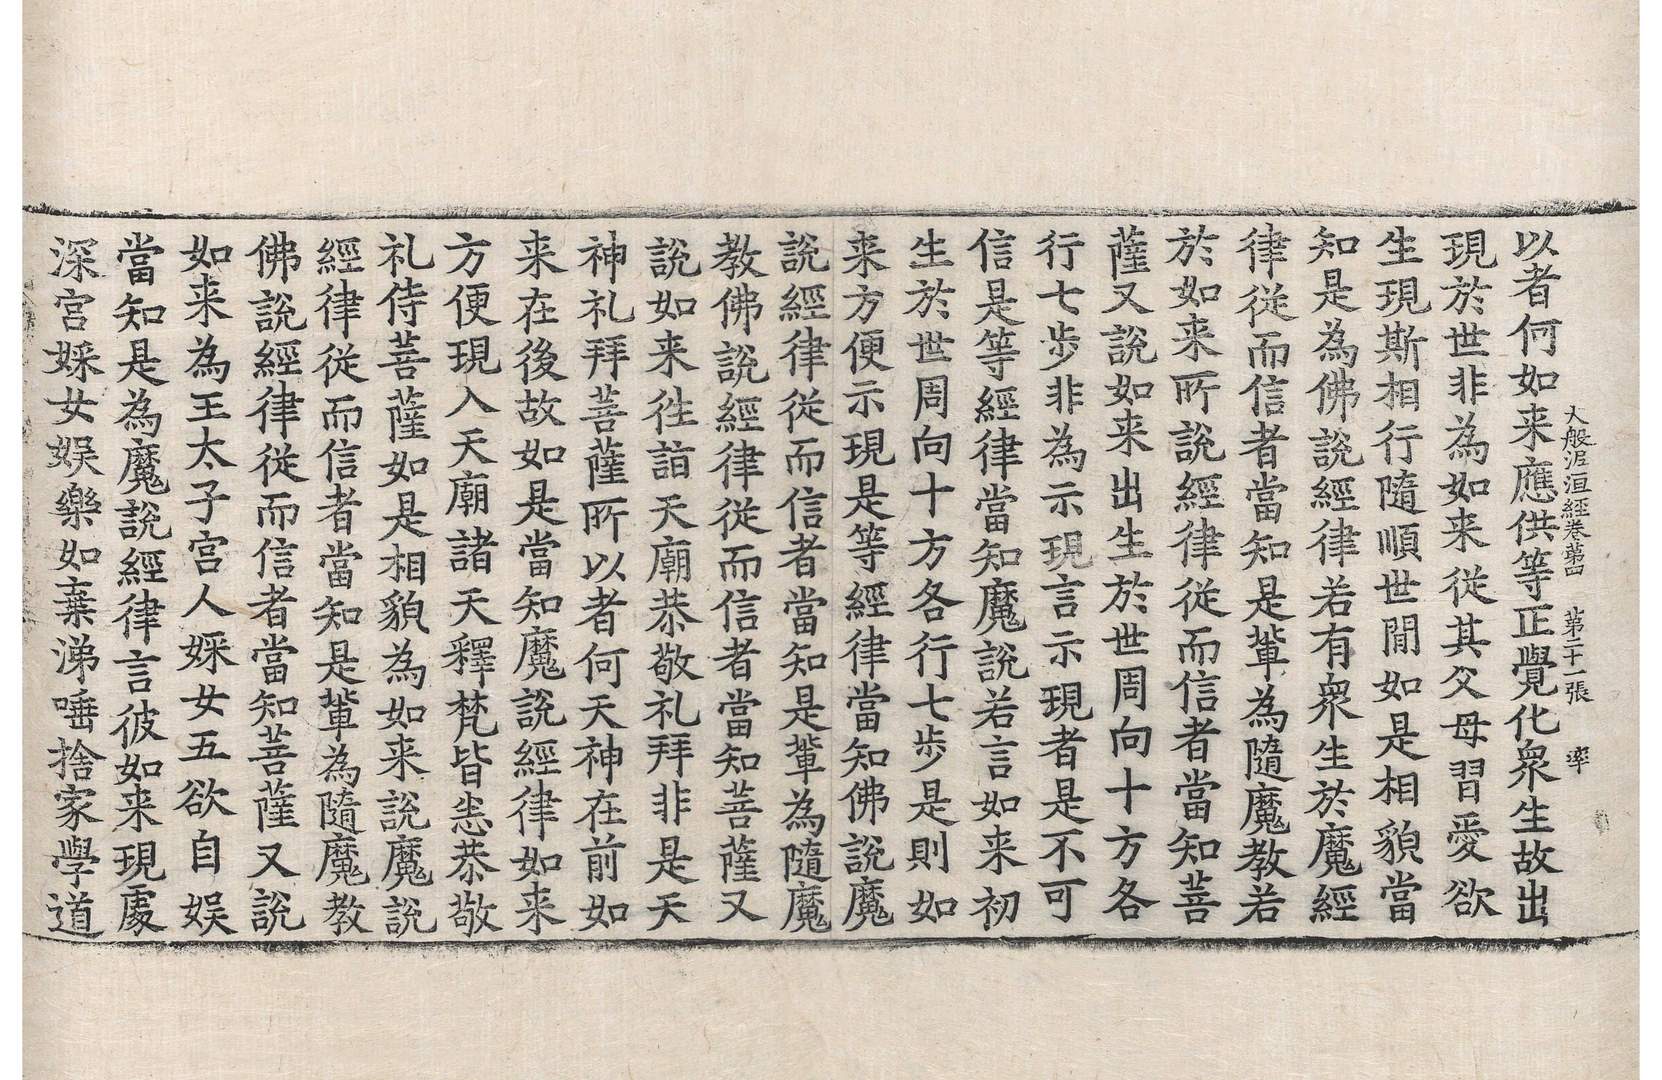 大般泥洹經卷第四 第二十一張 率
以者何如来應供等正覺化衆生故出
現於世非為如来從其父母習愛欲
生現斯相行隨順世閒如是相貌當
知是為佛說經律若有衆生於魔經
律從而信者當知是輩為隨魔教若
於如来所說經律從而信者當知菩
薩又說如来出生於世周向十方各
行七步非為示現言示現者是不可
信是等經律當知魔說若言如来初
生於世周向十方各行七步是則如
来方便示現是等經律當知佛說魔
說經律從而信者當知是輩為隨魔
教佛說經律從而信者當知菩薩又
說如来往詣天廟恭敬礼拜非是天
神礼拜菩薩所以者何天神在前如
来在後故如是當知魔說經律如来
方便現入天廟諸天釋梵皆悉恭敬
礼侍菩薩如是相貌為如来說魔說
經律從而信者當知是輩為隨魔教
佛說經律從而信者當知菩薩又說
如来為王太子宮人婇女五欲自娱
當知是為魔說經律言彼如来現處
深宮婇女娱樂如棄涕唾捨家學道